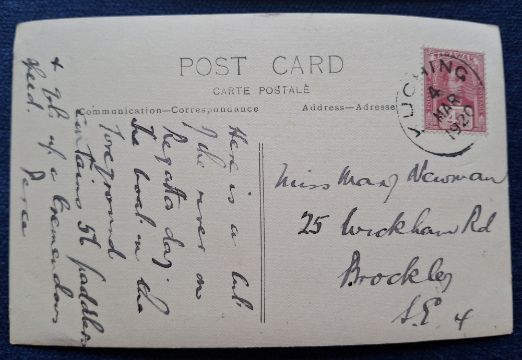 POST CARD
CARTE POSTALE
Communication—Correspondance
Address—Adresse
SARAWAK
KUCHING
4
MAR
1920
Here is a bit
of the river on
Regatta day.
The boat in the
foreground
contains 56 paddlers
& gets up a tremendous
speed.
Miss Mary Newman
25 Wickham Rd
Brockley
S.E. 4